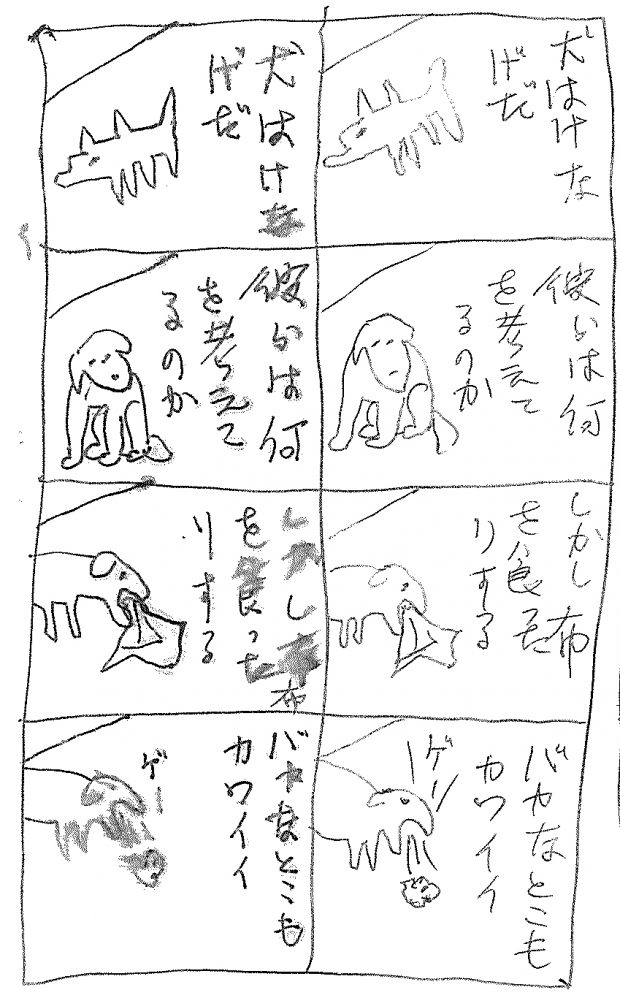 犬はけな
げだ
彼らは何
を考えて
るのか
しかし布
を食った
りする
バカなとこも
カワイイ
ゲー
犬はけな
げだ
彼らは何
を考えて
るのか
しかし布
を食った
りする
バカなとこも
カワイイ
ゲー